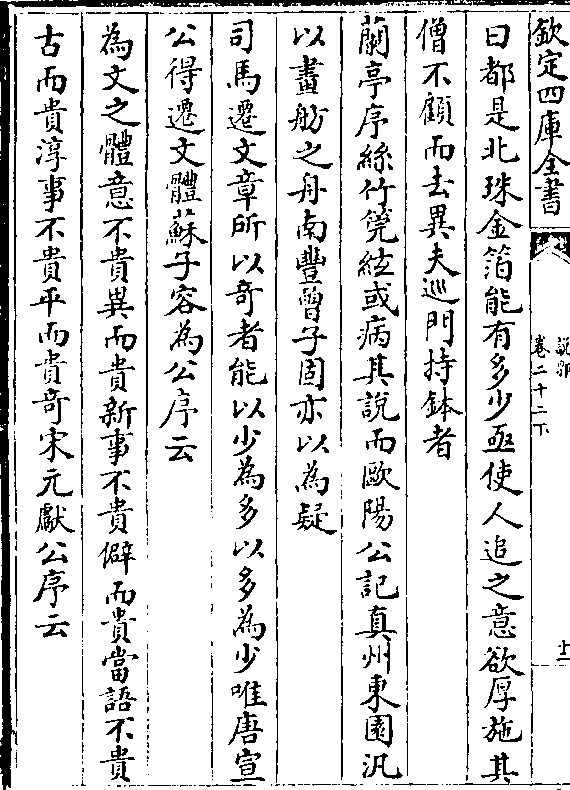 欽定四庫全書
說郛
卷二十二下
十二
曰都是北珠金箔能有多少亟使人追之意欲厚施其
僧不顧而去異夫巡門持鉢者
蘭亭序絲竹筦絃或病其說而歐陽公記真州東園汎
以畫舫之舟南豐曾子固亦以為疑
司馬遷文章所以奇者能以少為多以多為少唯唐宣
公得遷文體蘇子容為公序云
為文之體意不貴異而貴新事不貴僻而貴當語不貴
古而貴淳事不貴平而貴奇宋元獻公序云